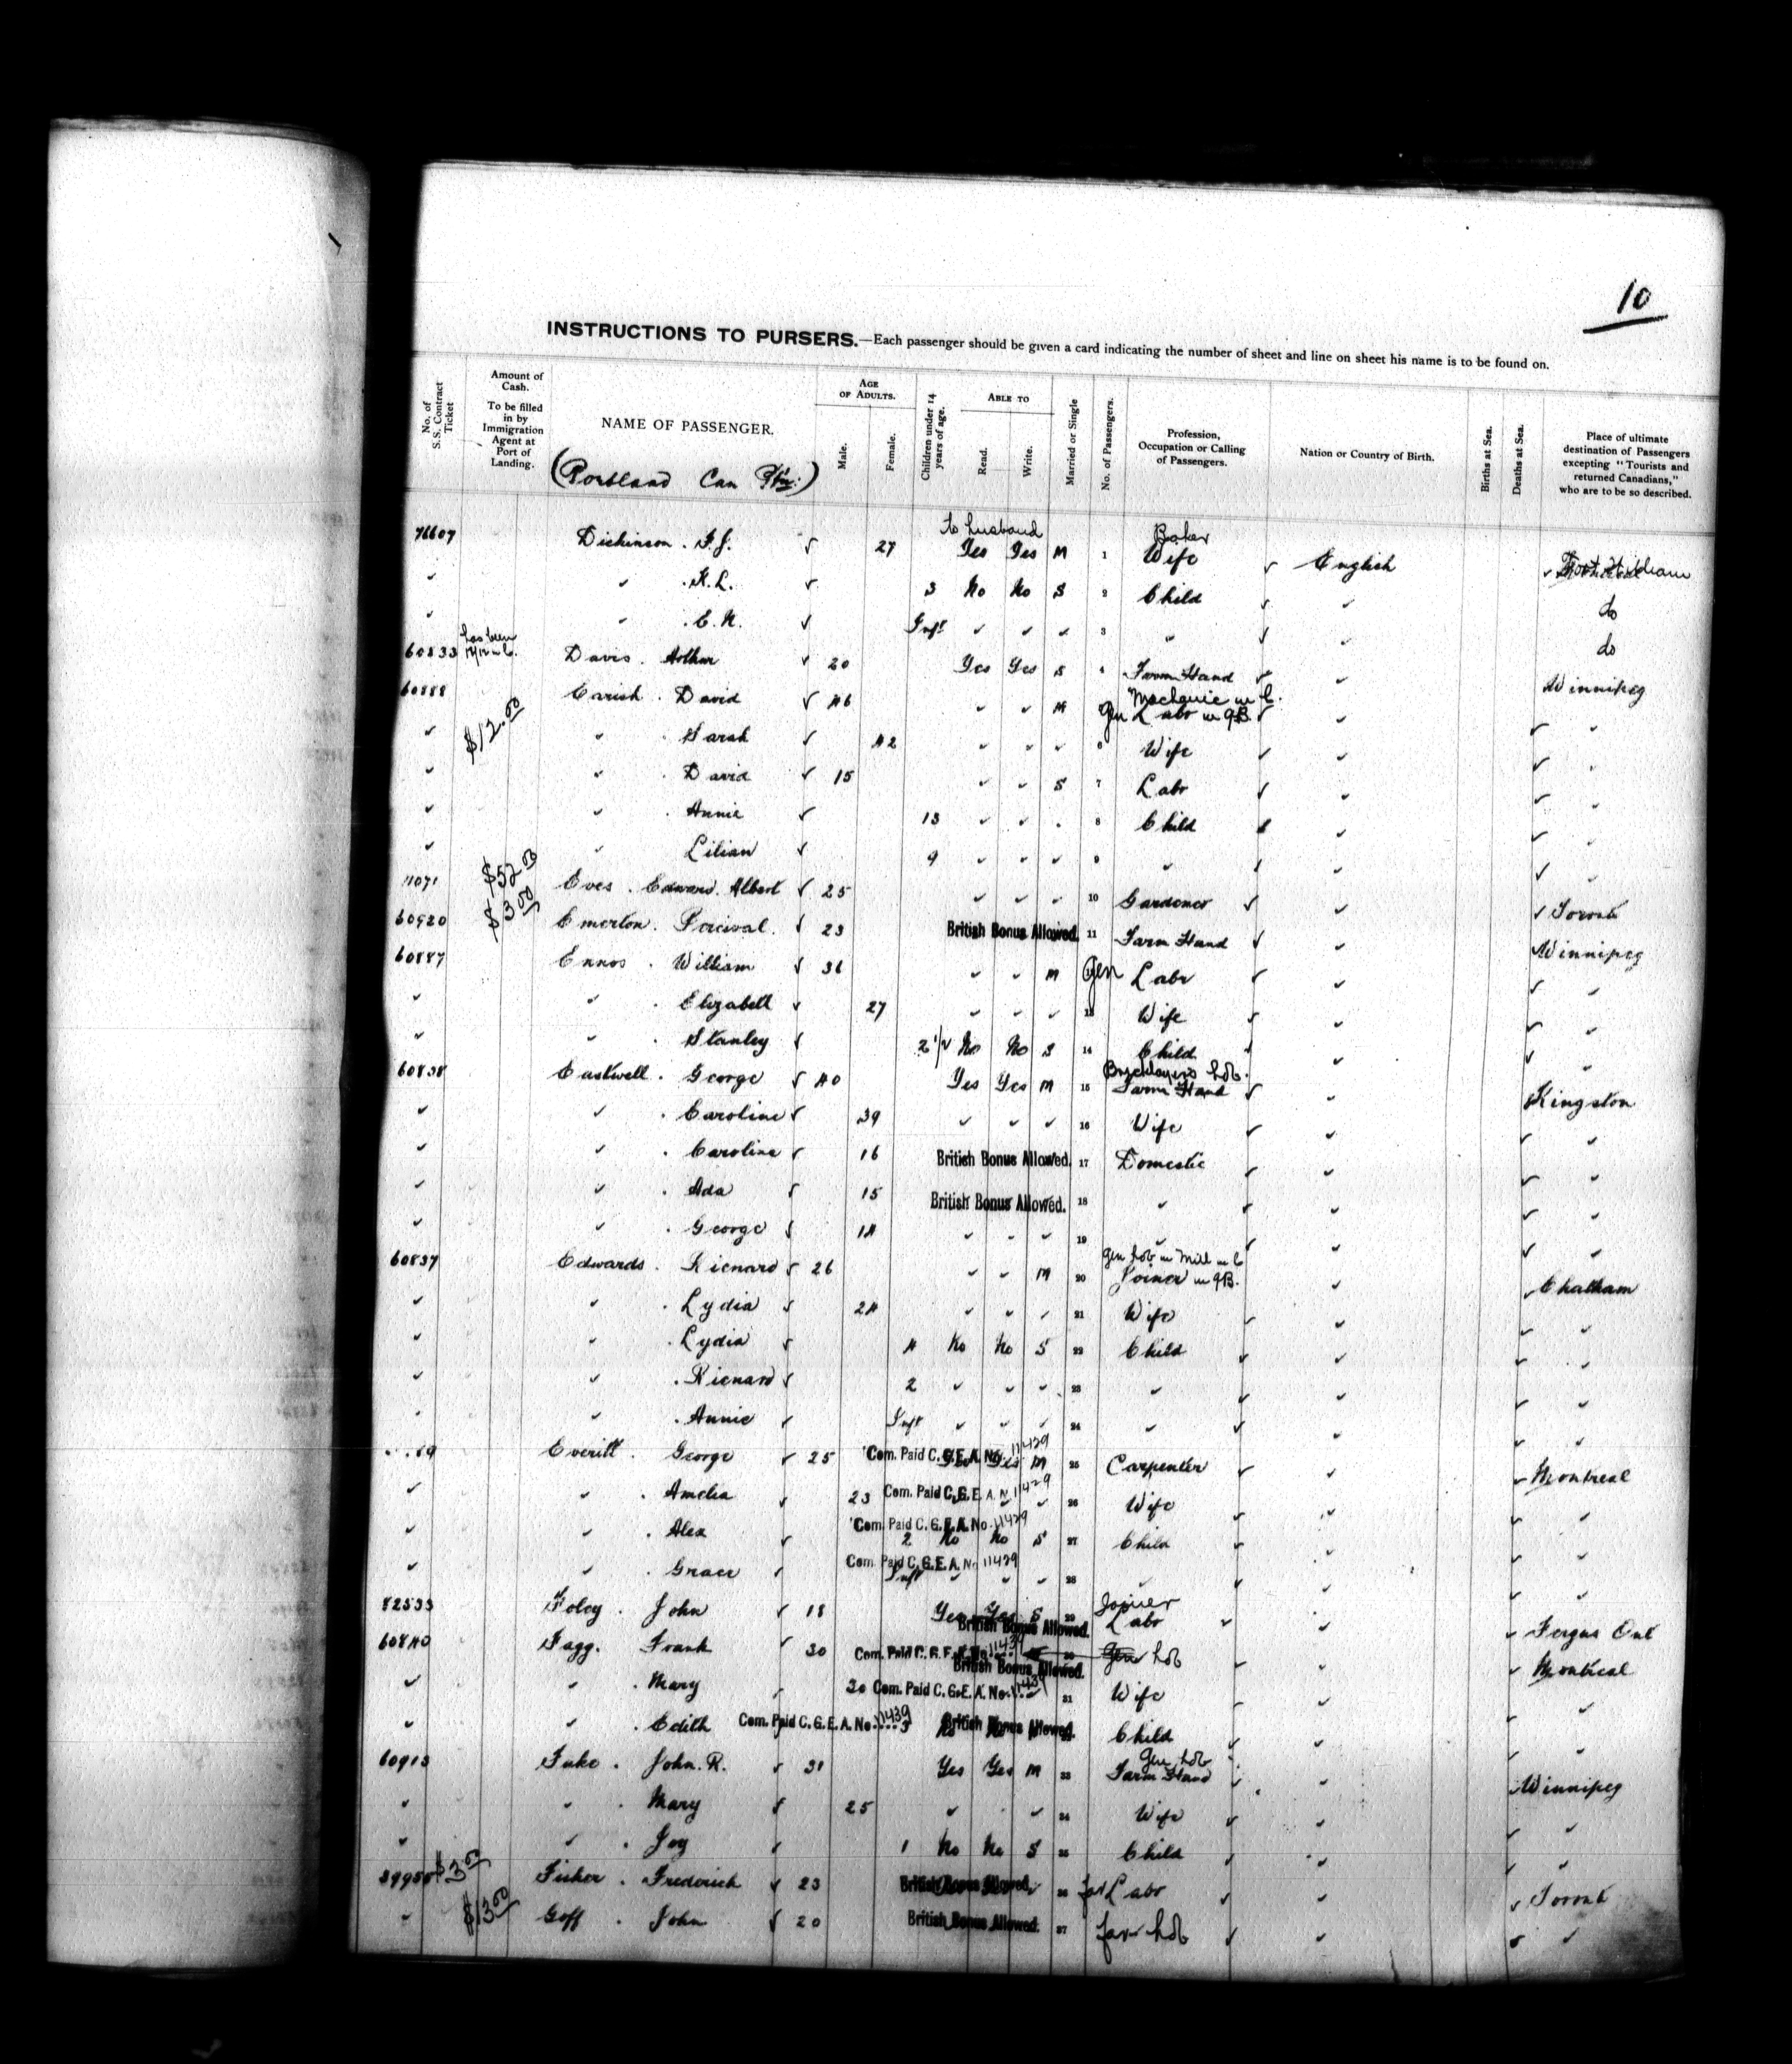 10
INSTRUCTIONS TO PURSERS.—Each passenger should be given a card indicating the number of sheet and line on sheet his name is to be found on.
No. of S.S. Contract Ticket
Amount of Cash. To be filled in by Immigration Agent at Port of Landing.
NAME OF PASSENGER.
AGE OF ADULTS. Male. Female.
Children under 14 years of age.
ABLE TO Read. Write.
Married or Single
No. of Passengers.
Profession, Occupation or Calling of Passengers.
Nation or Country of Birth.
Births at Sea.
Deaths at Sea.
Place of ultimate destination of Passengers excepting "Tourists and returned Canadians," who are to be so described.
(Portland Can
to husband Baker
76607 Dickinson . F.J. ✓ 27 Yes Yes M 1 Wife ✓ English ✓ Fort William
✓ ✓ . K.L. ✓ 3 No No S 2 Child ✓ ✓ do
✓ ✓ . E.N. ✓ Inft ✓ ✓ ✓ 3 " ✓ ✓ do
has been
60833 Davis . Arthur ✓ 20 Yes Yes S 4 Farm Hand ✓ ✓ Winnipeg
Mechanic in C.
60888 Earish . David ✓ 46 ✓ ✓ M Gen Labr in G.B. ✓ ✓ ✓ "
✓ $12.00 ✓ . Sarah ✓ 42 ✓ ✓ ✓ 6 Wife ✓ ✓ ✓ "
✓ ✓ . David ✓ 15 ✓ ✓ S 7 Labr ✓ ✓ ✓ "
✓ ✓ . Annie ✓ 13 ✓ ✓ . 8 Child ✓ ✓ "
✓ ✓ Lilian ✓ 9 ✓ ✓ ✓ 9 ✓ ✓ ✓ ✓ "
11071 $52.00 Eves . Edward. Albert ✓ 25 ✓ ✓ ✓ 10 Gardener ✓ ✓ ✓ Toronto
60920 $3.00 Emerton. Percival. ✓ 23 British Bonus Allowed. 11 Farm Hand ✓ ✓ Winnipeg
60887 Ennos . William ✓ 36 ✓ ✓ M Gen Labr ✓ ✓ ✓ ✓
✓ ✓ . Elizabeth ✓ 27 ✓ ✓ ✓ 13 Wife ✓ ✓ ✓ ✓
✓ ✓ . Stanley ✓ 2 1/2 No No S 14 Child ✓ ✓ ✓ ✓
Bricklayers Lab.
60838 Eastwell . George ✓ 40 Yes Yes M 15 Farm Hand ✓ ✓ Kingston
✓ ✓ . Caroline ✓ 39 ✓ ✓ ✓ 16 Wife ✓ ✓ ✓ ✓
✓ ✓ . Caroline ✓ 16 British Bonus Allowed. 17 Domestic ✓ ✓ ✓ ✓
✓ ✓ . Ada ✓ 15 British Bonus Allowed. 18 ✓ ✓ ✓ ✓ ✓
✓ ✓ . George ✓ 14 ✓ ✓ ✓ 19 ✓ ✓ ✓ ✓ ✓
gen Lab in Mill in C
60837 Edwards . Richard ✓ 26 ✓ ✓ M 20 Joiner in G.B. ✓ ✓ Chatham
✓ ✓ . Lydia ✓ 24 ✓ ✓ ✓ 21 Wife ✓ ✓ ✓ ✓
✓ ✓ . Lydia ✓ 4 No No S 22 Child ✓ ✓ ✓ ✓
✓ ✓ . Richard ✓ 2 ✓ ✓ ✓ 23 ✓ ✓ ✓ ✓ ✓
✓ ✓ . Annie ✓ Inft ✓ ✓ ✓ 24 ✓ ✓ ✓ ✓ ✓
Everitt . George ✓ 25 Com. Paid C.G.E.A. No. 11429 Yes Yes M 25 Carpenter ✓ ✓ ✓ Montreal
✓ ✓ . Amelia ✓ 23 Com. Paid C.G.E.A. No. 11429 ✓ ✓ 26 Wife ✓ ✓ ✓ ✓
✓ ✓ . Alex ✓ Com. Paid C.G.E.A. No. 11429 2 No No S 27 Child ✓ ✓ ✓ ✓
✓ ✓ . Grace ✓ Com. Paid C.G.E.A. No. 11429 Inft ✓ ✓ ✓ 28 ✓ ✓ ✓ ✓ ✓
Joiner
82533 Foley . John ✓ 18 Yes Yes S British Bonus Allowed. 29 Labr ✓ ✓ ✓ Fergus Ont
60840 Fagg. Frank ✓ 30 Com. Paid C.G.E.A. No. 11439 British Bonus Allowed. 30 Gen Lab ✓ ✓ ✓ Montreal
✓ ✓ . Mary ✓ 30 Com. Paid C.G.E.A. No. 11439 31 Wife ✓ ✓ ✓ ✓
✓ ✓ . Edith Com. Paid C.G.E.A. No. 11439 3 British Bonus Allowed. Child ✓ ✓ ✓ ✓
Gen Lab
60913 Fuke . John. R. ✓ 31 Yes Yes M 33 Farm Hand ✓ ✓ Winnipeg
✓ ✓ . Mary ✓ 25 ✓ ✓ ✓ 34 Wife ✓ ✓ ✓ ✓
✓ ✓ . Joy ✓ 1 No No S 35 Child ✓ ✓ ✓ ✓
39950 $3.00 Fisher . Frederick ✓ 23 British Bonus Allowed. 36 far Labr ✓ ✓ ✓ Toronto
✓ $13.00 Goff . John ✓ 20 British Bonus Allowed. 37 far Lab ✓ ✓ ✓ ✓